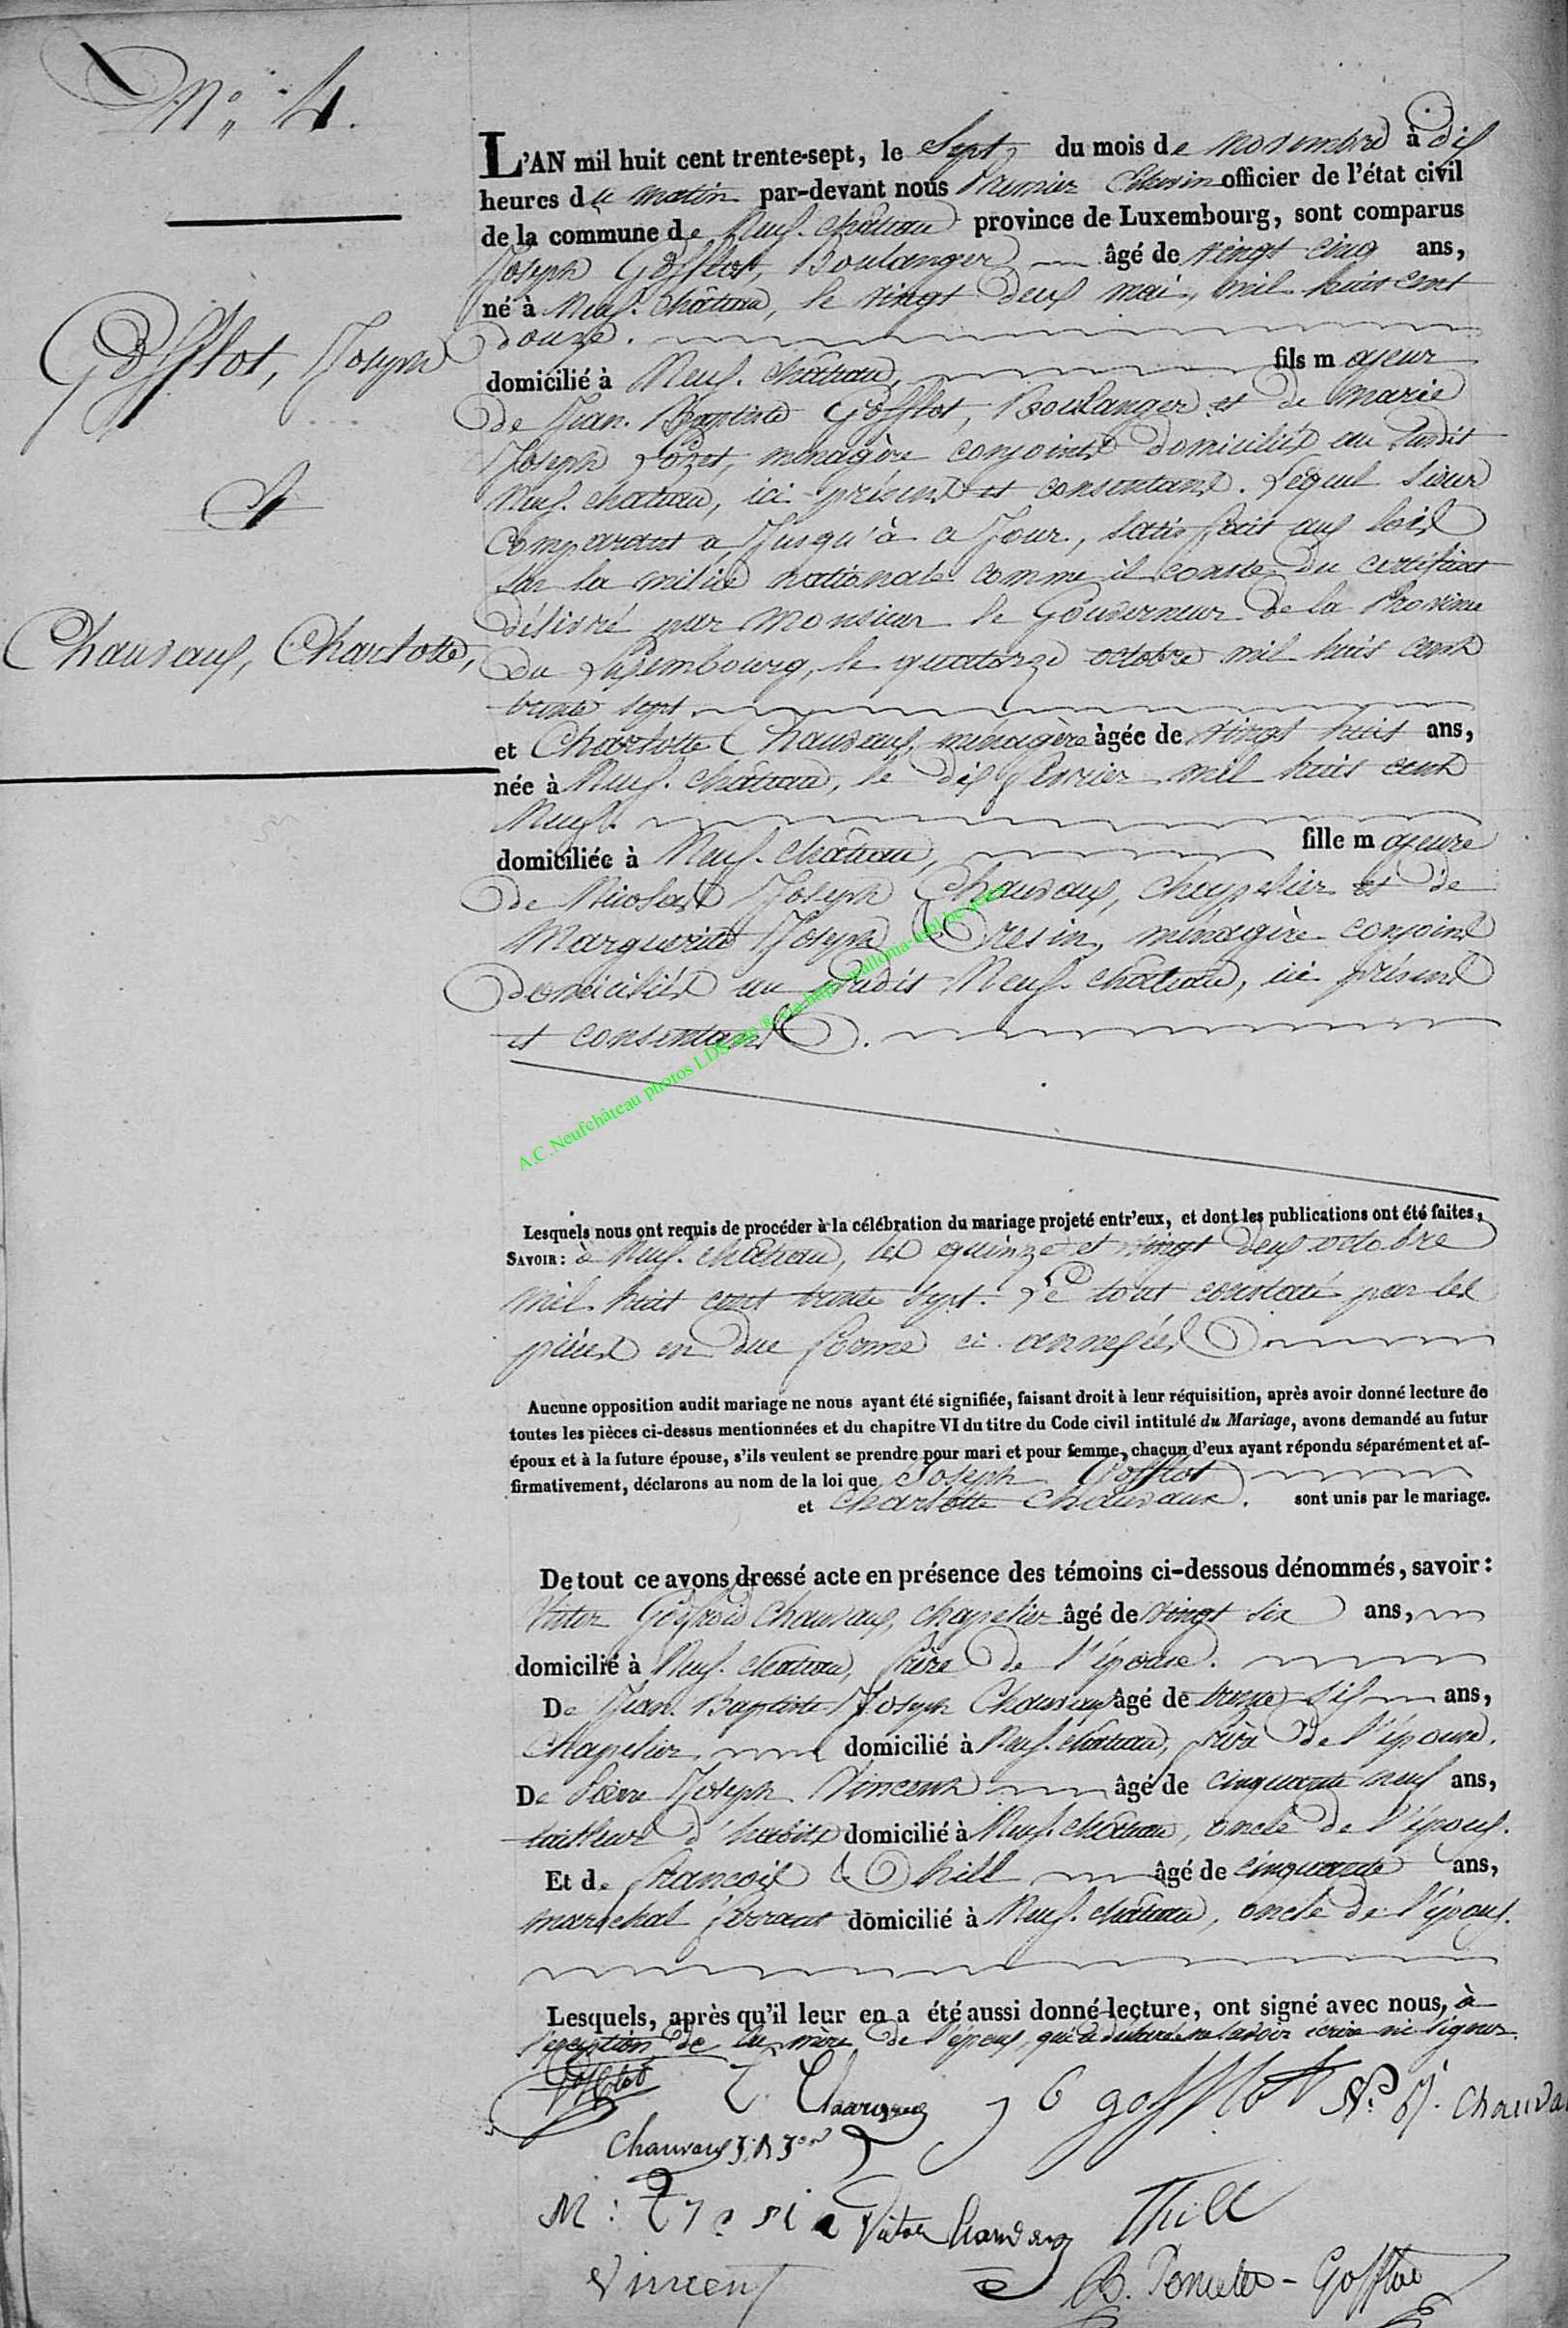 N° 4.
L'AN mil huit cent trente-sept, le Sept, du mois de novembre à dix
heures du matin par-devant nous Premier Echevin officier de l'état civil
de la commune de Neuf-château province de Luxembourg, sont comparus
Joseph Gofflot, Boulanger âgé de vingt cinq ans,
né à Neuf-château, le vingt deux mai, mil huit cent
douze.
Gofflot, Joseph
domicilié à Neuf-château, fils majeur
de Jean-Baptiste Gofflot, Boulanger et de Marie
Joseph Lozet, ménagère conjoints domiciliés au susdit
Neuf-chateau, ici présens et consentans. Lequel Sieur
&
Comparant a Jusqu'à ce Jour, satisfait aux lois
sur la milice nationale comme il conste du certificat
délivré par Monsieur le Gouverneur de la Province
Chauvaux, Charlotte,
du Luxembourg, le quatorze octobre mil huit cent
trente sept.
et Charlotte Chauvaux, ménagère âgée de vingt huit ans,
née à Neuf-château, le dix Février mil huit cent
Neuf.
domiciliée à Neuf-château, fille majeure
de Nicolas Joseph Chauvaux, Chapelier et de
Marguerite Joseph Tresin, ménagère conjoins
domiciliés au susdit Neuf-château, ici présens
et consentans.
A.C.Neufchâteau photos LDS
Lesquels nous ont requis de procéder à la célébration du mariage projeté entr'eux, et dont les publications ont été faites,
SAVOIR: à Neuf-château, les quinze et vingt deux octobre
mil huit cent trente sept. Le tout constaté par les
pièces en due forme ci-annexées
Aucune opposition audit mariage ne nous ayant été signifiée, faisant droit à leur réquisition, après avoir donné lecture de
toutes les pièces ci-dessus mentionnées et du chapitre VI du titre du Code civil intitulé du Mariage, avons demandé au futur
époux et à la future épouse, s'ils veulent se prendre pour mari et pour femme, chacun d'eux ayant répondu séparément et af-
firmativement, déclarons au nom de la loi que Joseph Gofflot
et Charlotte Chauvaux. sont unis par le mariage.
De tout ce avons dressé acte en présence des témoins ci-dessous dénommés, savoir:
Victor Godfroid Chauvaux, chapelier âgé de vingt six ans,
domicilié à Neuf-chateau, frère de l'épouse.
De Jean-Baptiste Joseph Chauvaux âgé de trente six ans,
Chapelier domicilié à Neuf-château, frère de l'épouse.
De Pierre Joseph Vincent âgé de cinquante neuf ans,
tailleur d'habits domicilié à Neuf-château, oncle de l'époux.
Et de François Thill âgé de cinquante ans,
maréchal ferrant domicilié à Neuf-château, oncle de l'époux.
Lesquels, après qu'il leur en a été aussi donné lecture, ont signé avec nous, à
l'exception de la mère de l'époux, qui a déclaré ne savoir écrire ni signer.
Gofflot C. Chauvaux J b gofflot N. J. Chauva
Chauvaux J.B. Jph
M: Tresin Victor Chauvaux Thill
Vincent Gofflot